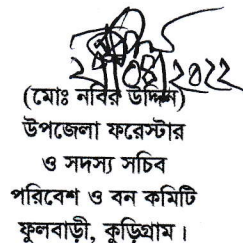 ২০২২
(মোঃ নবির উদ্দিন)
উপজেলা ফরেস্টার
ও সদস্য সচিব
পরিবেশ ও বন কমিটি
ফুলবাড়ী, কুড়িগ্রাম।